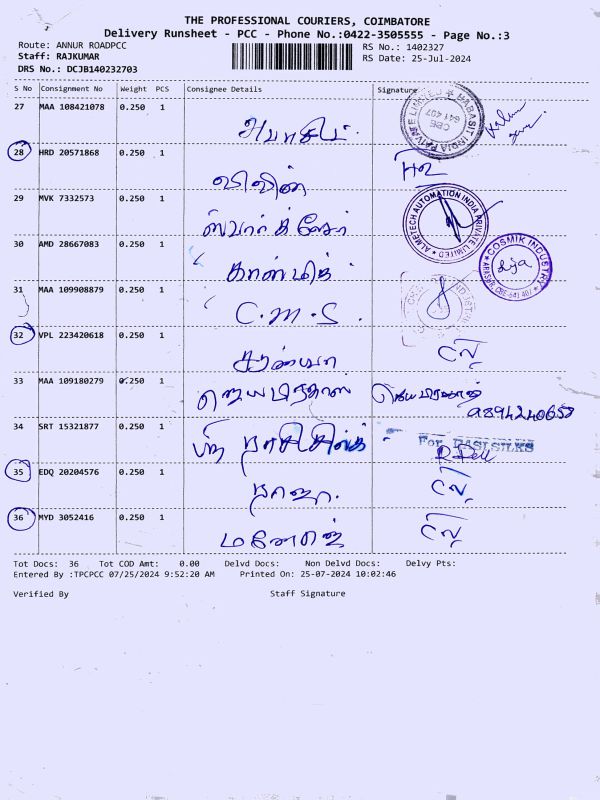 THE PROFESSIONAL COURIERS, COIMBATORE
Delivery Runsheet - PCC - Phone No.:0422-3505555 - Page No.:3
Route: ANNUR ROADPCC RS No.: 1402327
Staff: RAJKUMAR RS Date: 25-Jul-2024
DRS No.: DCJB140232703
S No Consignment No Weight PCS Consignee Details Signature
27 MAA 108421078 0.250 1
HABASIT INDIA PRIVATE LIMITED CBE 641 407
28 HRD 20571868 0.250 1
விவின்
29 MVK 7332573 0.250 1
ALMETECH AUTOMATION INDIA PRIVATE LIMITED
30 AMD 28667083 0.250 1
காஸ்மிக்
COSMIK INDUSTRY ARASUR, CBE-641 407
31 MAA 109908879 0.250 1
C.M.S.
32 VPL 223420618 0.250 1
33 MAA 109180279 0.250 1
ஜெயபிரகாஷ் ஜெயபிரகாஷ்
34 SRT 15321877 0.250 1
For RASI SILKS
ஸ்ரீ ராசி சில்க்
35 EDQ 20204576 0.250 1
ராஜா.
36 MYD 3052416 0.250 1
மனோஜ்
Tot Docs: 36 Tot COD Amt: 0.00 Delvd Docs: Non Delvd Docs: Delvy Pts:
Entered By :TPCPCC 07/25/2024 9:52:20 AM Printed On: 25-07-2024 10:02:46
Verified By Staff Signature